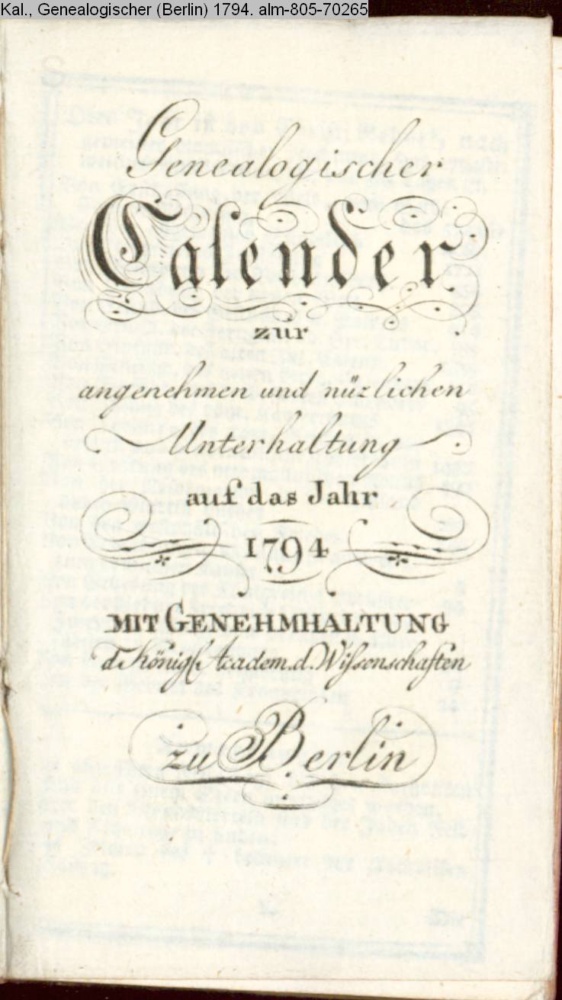 Kal., Genealogischer (Berlin) 1794. alm-805-70265
Genealogischer
Calender
zur
angenehmen und nüzlichen
Unterhaltung
auf das Jahr
1794
MIT GENEHMHALTUNG
d. Königl. Academ. d. Wißenschaften
zu Berlin